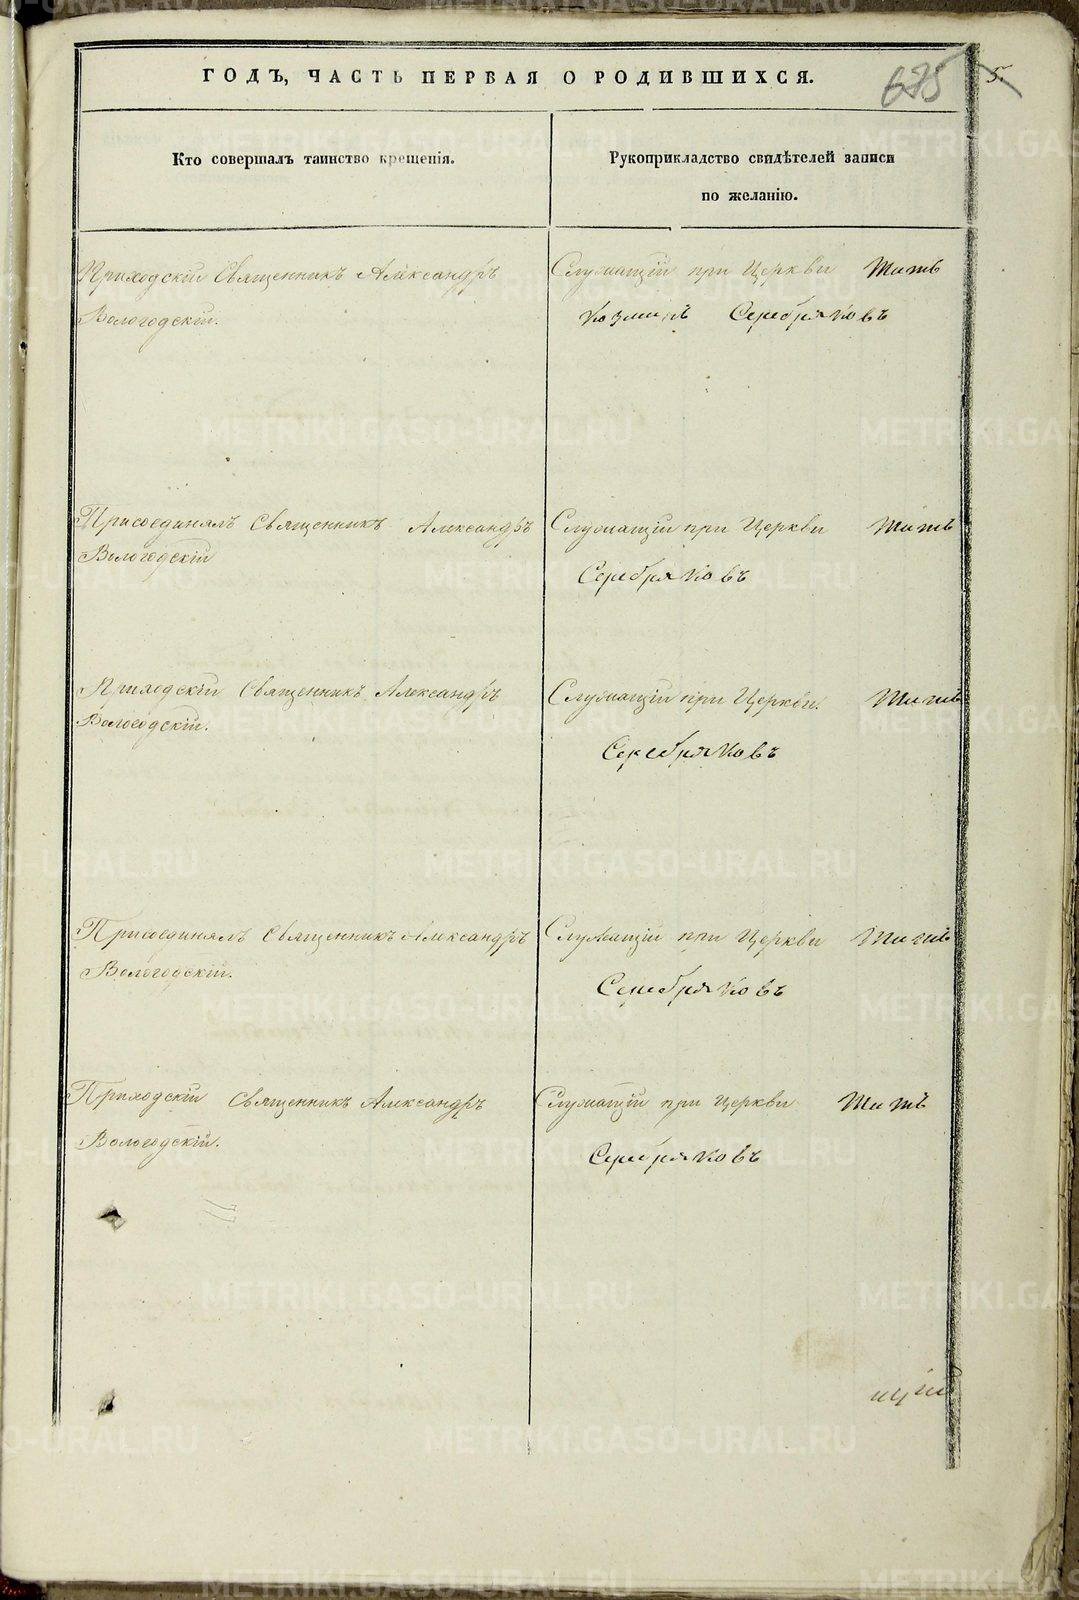 ГОДЪ, ЧАСТЬ ПЕРВАЯ О РОДИВШИХСЯ.
675
5.
Кто совершалъ таинство крещенія.
Рукоприкладство свидѣтелей записи
по желанію.
Приходскій Священникъ Александръ
Вологодскій.
Служащій при Церкви Титъ
Козминъ Серебряковъ
Присоединялъ Священникъ Александръ
Вологодскій
Служащій при Церкви Титъ
Серебряковъ
Приходскій Священникъ Александръ
Вологодскій.
Служащій при Церкви Титъ
Серебряковъ
Присоединялъ Священникъ Александръ
Вологодскій.
Служащій при Церкви Титъ
Серебряковъ
Приходскій Священникъ Александръ
Вологодскій.
Служащій при Церкви Титъ
Серебряковъ
METRIKI.GASO-URAL.RU